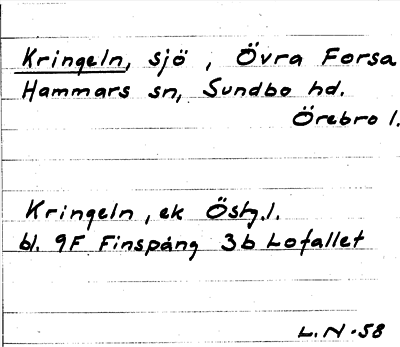 Kringeln, sjö, Övra Forsa
Hammars sn, Sundbo hd.
Örebro l.
Kringeln, ek Östg.l.
bl. 9F Finspång 3b Lofallet
L.N-58